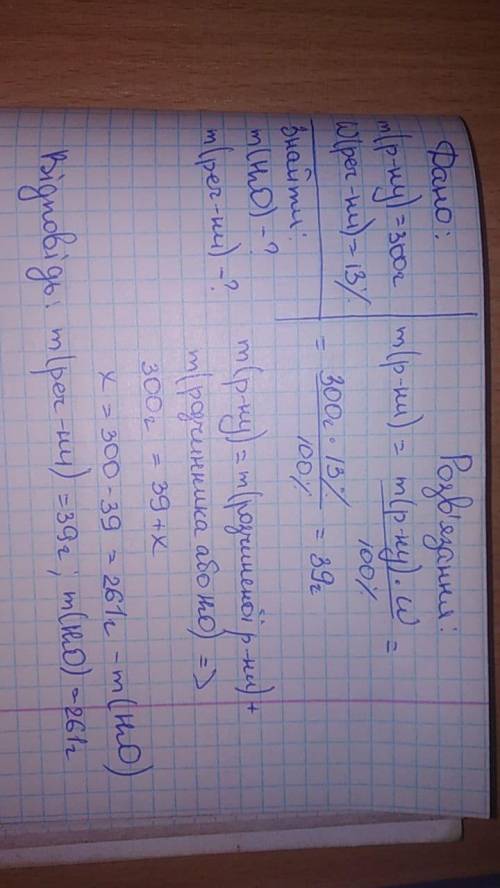 Дано:
m(р-ну) = 300г
W(реч-ни) = 13%
Знайти:
m(H2O) - ?
m(реч-ни) - ?
Розв'язання:
m(р-ни) = m(р-ну)·W / 100% =
= 300г·13% / 100% = 39г
m(р-ну) = m(розчиненої р-ни) +
m(розчинника або H2O) =>
300г = 39 + x
x = 300 - 39 = 261г - m(H2O)
Відповідь: m(реч-ни) = 39г; m(H2O) = 261г